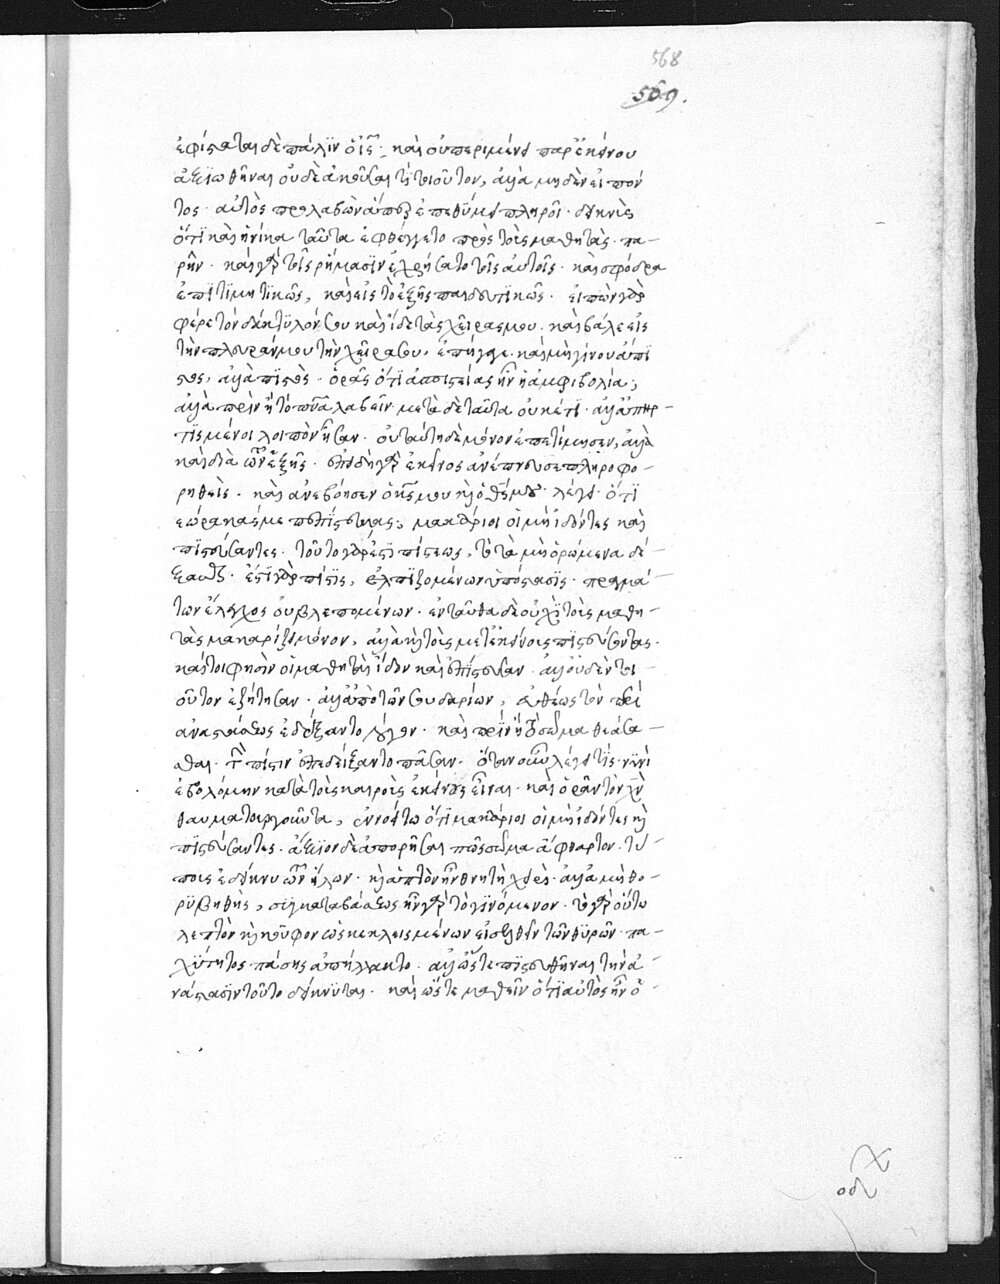 568
569.
ἐφίσταται δὲ πάλϊν ὁ ι̅ς̅· καὶ οὐ περιμένει παρ' ἐκείνου
ἀξιωθῆναι οὐδὲ ἀκοῦσαι τϊ τοιοῦτον, ἀλλὰ μηδὲν εἰπόν
τος· αὐτὸς προλαβὼν ἅπερ ἐπεθύμει πληροῖ· δεικνὺς
ὅτϊ καὶ ἡνίκα ταῦτα ἐφθέγγετο πρὸς τοὺς μαθητὰς· πα-
ρῆν· καὶ γὰρ τοῖς ρήμασϊν ἐχρήσατο τοῖς αὐτοῖς· καὶ σφόδρα
ἐπϊτϊμητϊκῶς, καὶ εἰς τὸ ἑξῆς παιδευτϊκῶς· εἰπὼν γὰρ
φέρε τὸν δάκτυλόν σου καὶ ἴδε τὰς χεῖρας μου· καὶ βάλε εἰς
τὴν πλευράν μου τὴν χεῖρα σου, ἐπήγαγε· καὶ μὴ γίνου ἄπϊ
στος, ἀλλὰ πϊστὸς· ὁρᾶς ὅτϊ ἀπιστείας ἦν ἡ ἀμφιβολία;
ἀλλὰ πρὶν ἢ τὸ πν̅α λαβεῖν· μετὰ δὲ ταῦτα οὐκέτϊ· ἀλλ' ἀπηρ-
τϊσμένοι λοιπὸν ἦσαν· οὐ ταύτη δὲ μόνον ἐπετίμησεν, ἀλλὰ
καὶ διὰ τῶν ἑξῆς· ἐπειδὴ γὰρ ἐκεῖνος ἀνέπνευσε πληροφο-
ρηθεὶς· καὶ ἀνεβόησεν ὁ κ̅ς̅ μου καὶ ὁ θ̅ς̅ μου· λέγει· ὅτϊ
ἑώρακάς με πεπίστευκας; μακάριοι οἱ μὴ ἰδόντες καὶ
πϊστεύσαντες· τοῦτο γὰρ ἐστϊ πίστεως, τὸ τὰ μὴ ὁρώμενα δέ-
ξασθαι· ἔστϊ γὰρ πίστϊς, ἐλπϊζομένων ὑπόστασϊς· πραγμά-
των ἔλεγχος οὐ βλεπομένων· ἐνταῦθα δὲ οὐχϊ τοὺς μαθη-
τὰς μακαρίζει μόνον, ἀλλὰ καὶ τοὺς μετ' ἐκείνοις πϊστεύσοντας·
καίτοι φησὶν οἱ μαθηταὶ ἴδον καὶ ἐπίστευσαν· ἀλλ' οὐδὲν τοι-
οῦτον ἐζήτησαν· ἀλλ' ἀπὸ τῶν σουδαρίων, εὐθέως τὸν περὶ
ἀναστάσεως ἐδέξαντο λόγον· καὶ πρὶν ἢ τὸ σῶμα θεάσα-
σθαι· τὴν πίστιν ἐπεδείξαντο πᾶσαν· ὅταν οὖν λέγει τϊς· νῦνὶ
ἐβουλόμην κατὰ τοὺς καιροὺς ἐκείνους εἶναι· καὶ ὁρᾶν τὸν χ̅ν̅
θαυματουργοῦντα, ἐννοείτω ὅτϊ μακάριοι οἱ μὴ ἰδόντες καὶ
πϊστεύσαντες. ἄξϊον δὲ ἀπορῆσαι πῶς σῶμα ἄφθαρτον· τύ-
πους ἐδείκνυ τῶν ἥλων· καὶ ἁπτὸν ἦν θνητῇ χειρὶ· ἀλλὰ μὴ θο-
ρυβηθῇς, συγκαταβάσεως ἦν γὰρ τὸ γϊνόμενον· τὸ γὰρ οὕτω
λεπτὸν καὶ κοῦφον ὡς κεκλεισμένων εἰσελθεῖν τῶν θυρῶν· πα-
χύτητος πάσης ἀπήλλακτο· ἀλλ' ὥστε πϊστευθῆναι τὴν ἀ-
νάστασϊν τοῦτο δείκνϋται· καὶ ὥστε μαθεῖν ὅτϊ αὐτὸς ἦν ὁ